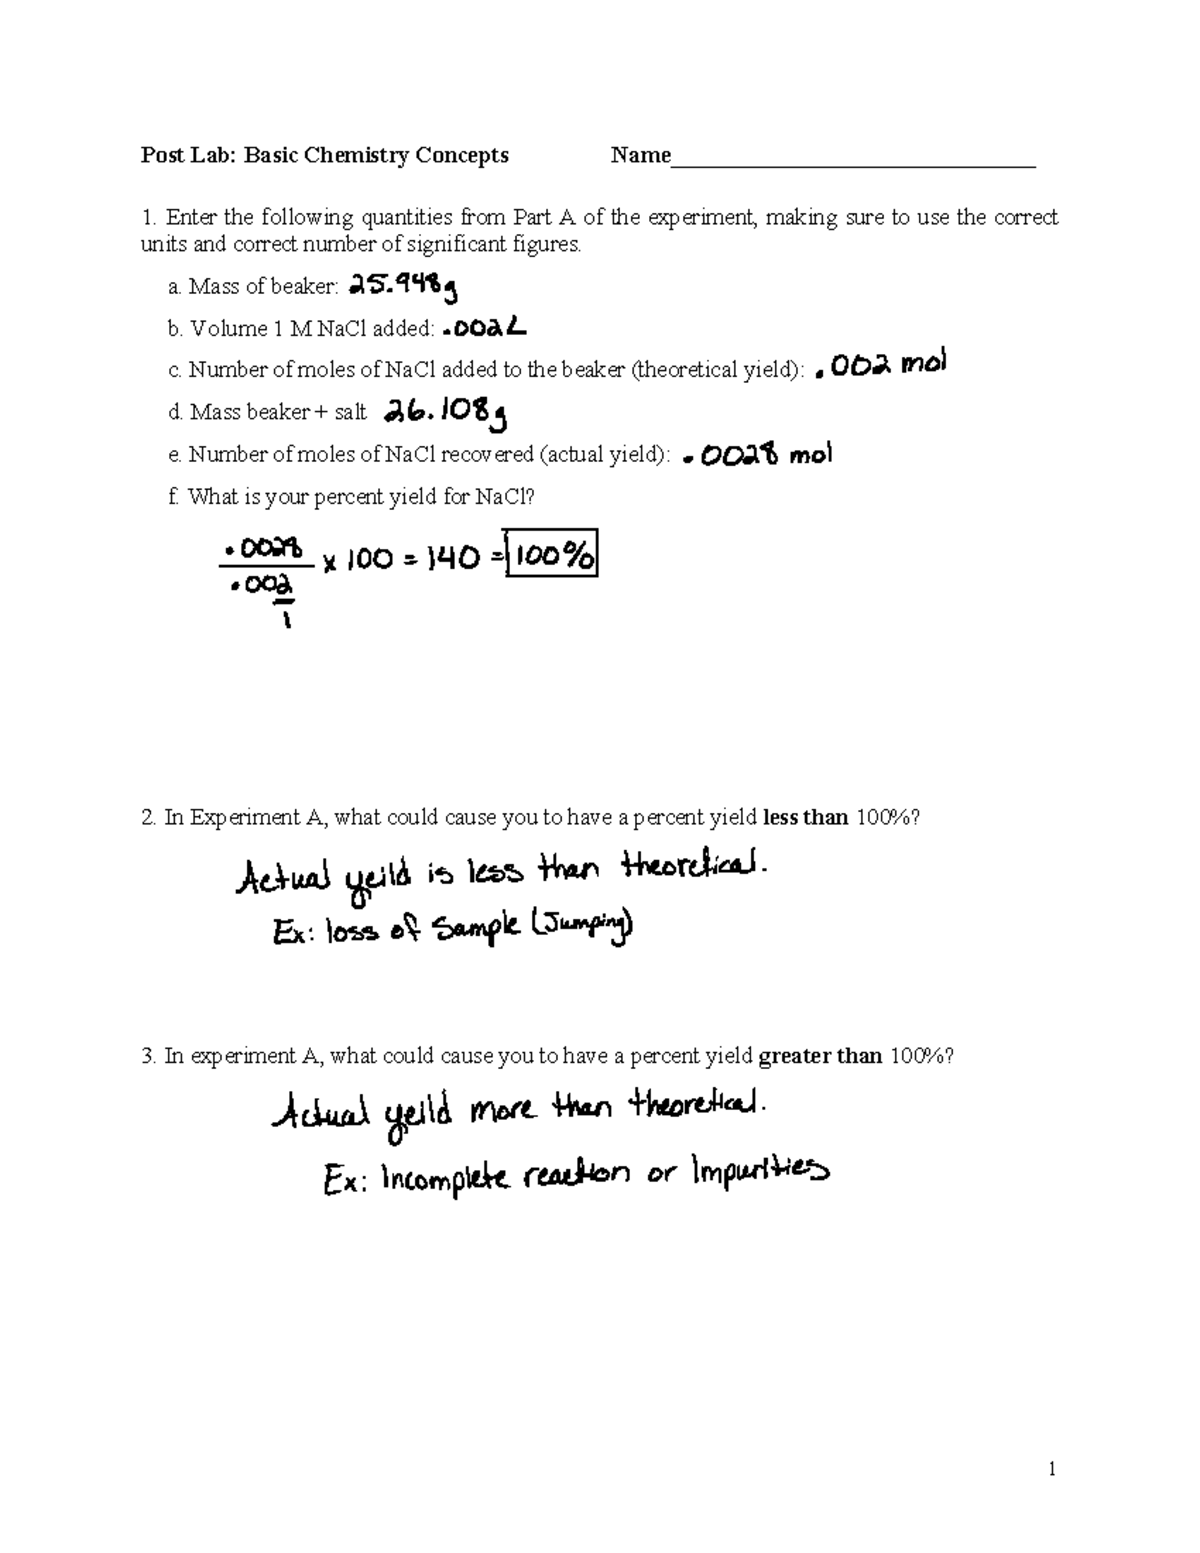 Post Lab: Basic Chemistry Concepts Name______________________________
1. Enter the following quantities from Part A of the experiment, making sure to use the correct
units and correct number of significant figures.
a. Mass of beaker: 25.948g
b. Volume 1 M NaCl added: .002L
c. Number of moles of NaCl added to the beaker (theoretical yield): .002 mol
d. Mass beaker + salt 26.108g
e. Number of moles of NaCl recovered (actual yield): .0028 mol
f. What is your percent yield for NaCl?
.0028
x 100 = 140 = 100%
.002
1
2. In Experiment A, what could cause you to have a percent yield less than 100%?
Actual yeild is less than theoretical.
Ex: loss of Sample (Jumping)
3. In experiment A, what could cause you to have a percent yield greater than 100%?
Actual yeild more than theoretical.
Ex: Incomplete reaction or Impurities
1